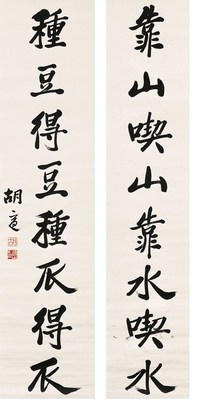 靠山喫山靠水喫水
種豆得豆種瓜得瓜
胡